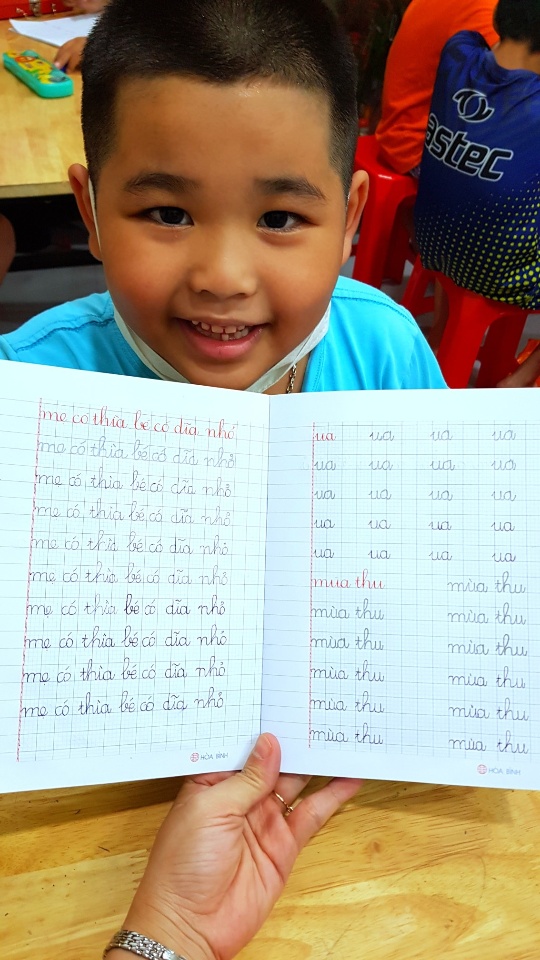 astec
mẹ có thìa bé có dĩa nhỏ
mẹ có thìa bé có dĩa nhỏ
mẹ có thìa bé có dĩa nhỏ
mẹ có thìa bé có dĩa nhỏ
mẹ có thìa bé có dĩa nhỏ
mẹ có thìa bé có dĩa nhỏ
mẹ có thìa bé có dĩa nhỏ
mẹ có thìa bé có dĩa nhỏ
mẹ có thìa bé có dĩa nhỏ
mẹ có thìa bé có dĩa nhỏ
HÒA BÌNH
ua ua ua ua
ua ua ua ua
ua ua ua ua
ua ua ua ua
ua ua ua ua
mùa thu mùa thu
mùa thu mùa thu
mùa thu mùa thu
mùa thu mùa thu
mùa thu mùa thu
mùa thu mùa thu
HÒA BÌNH